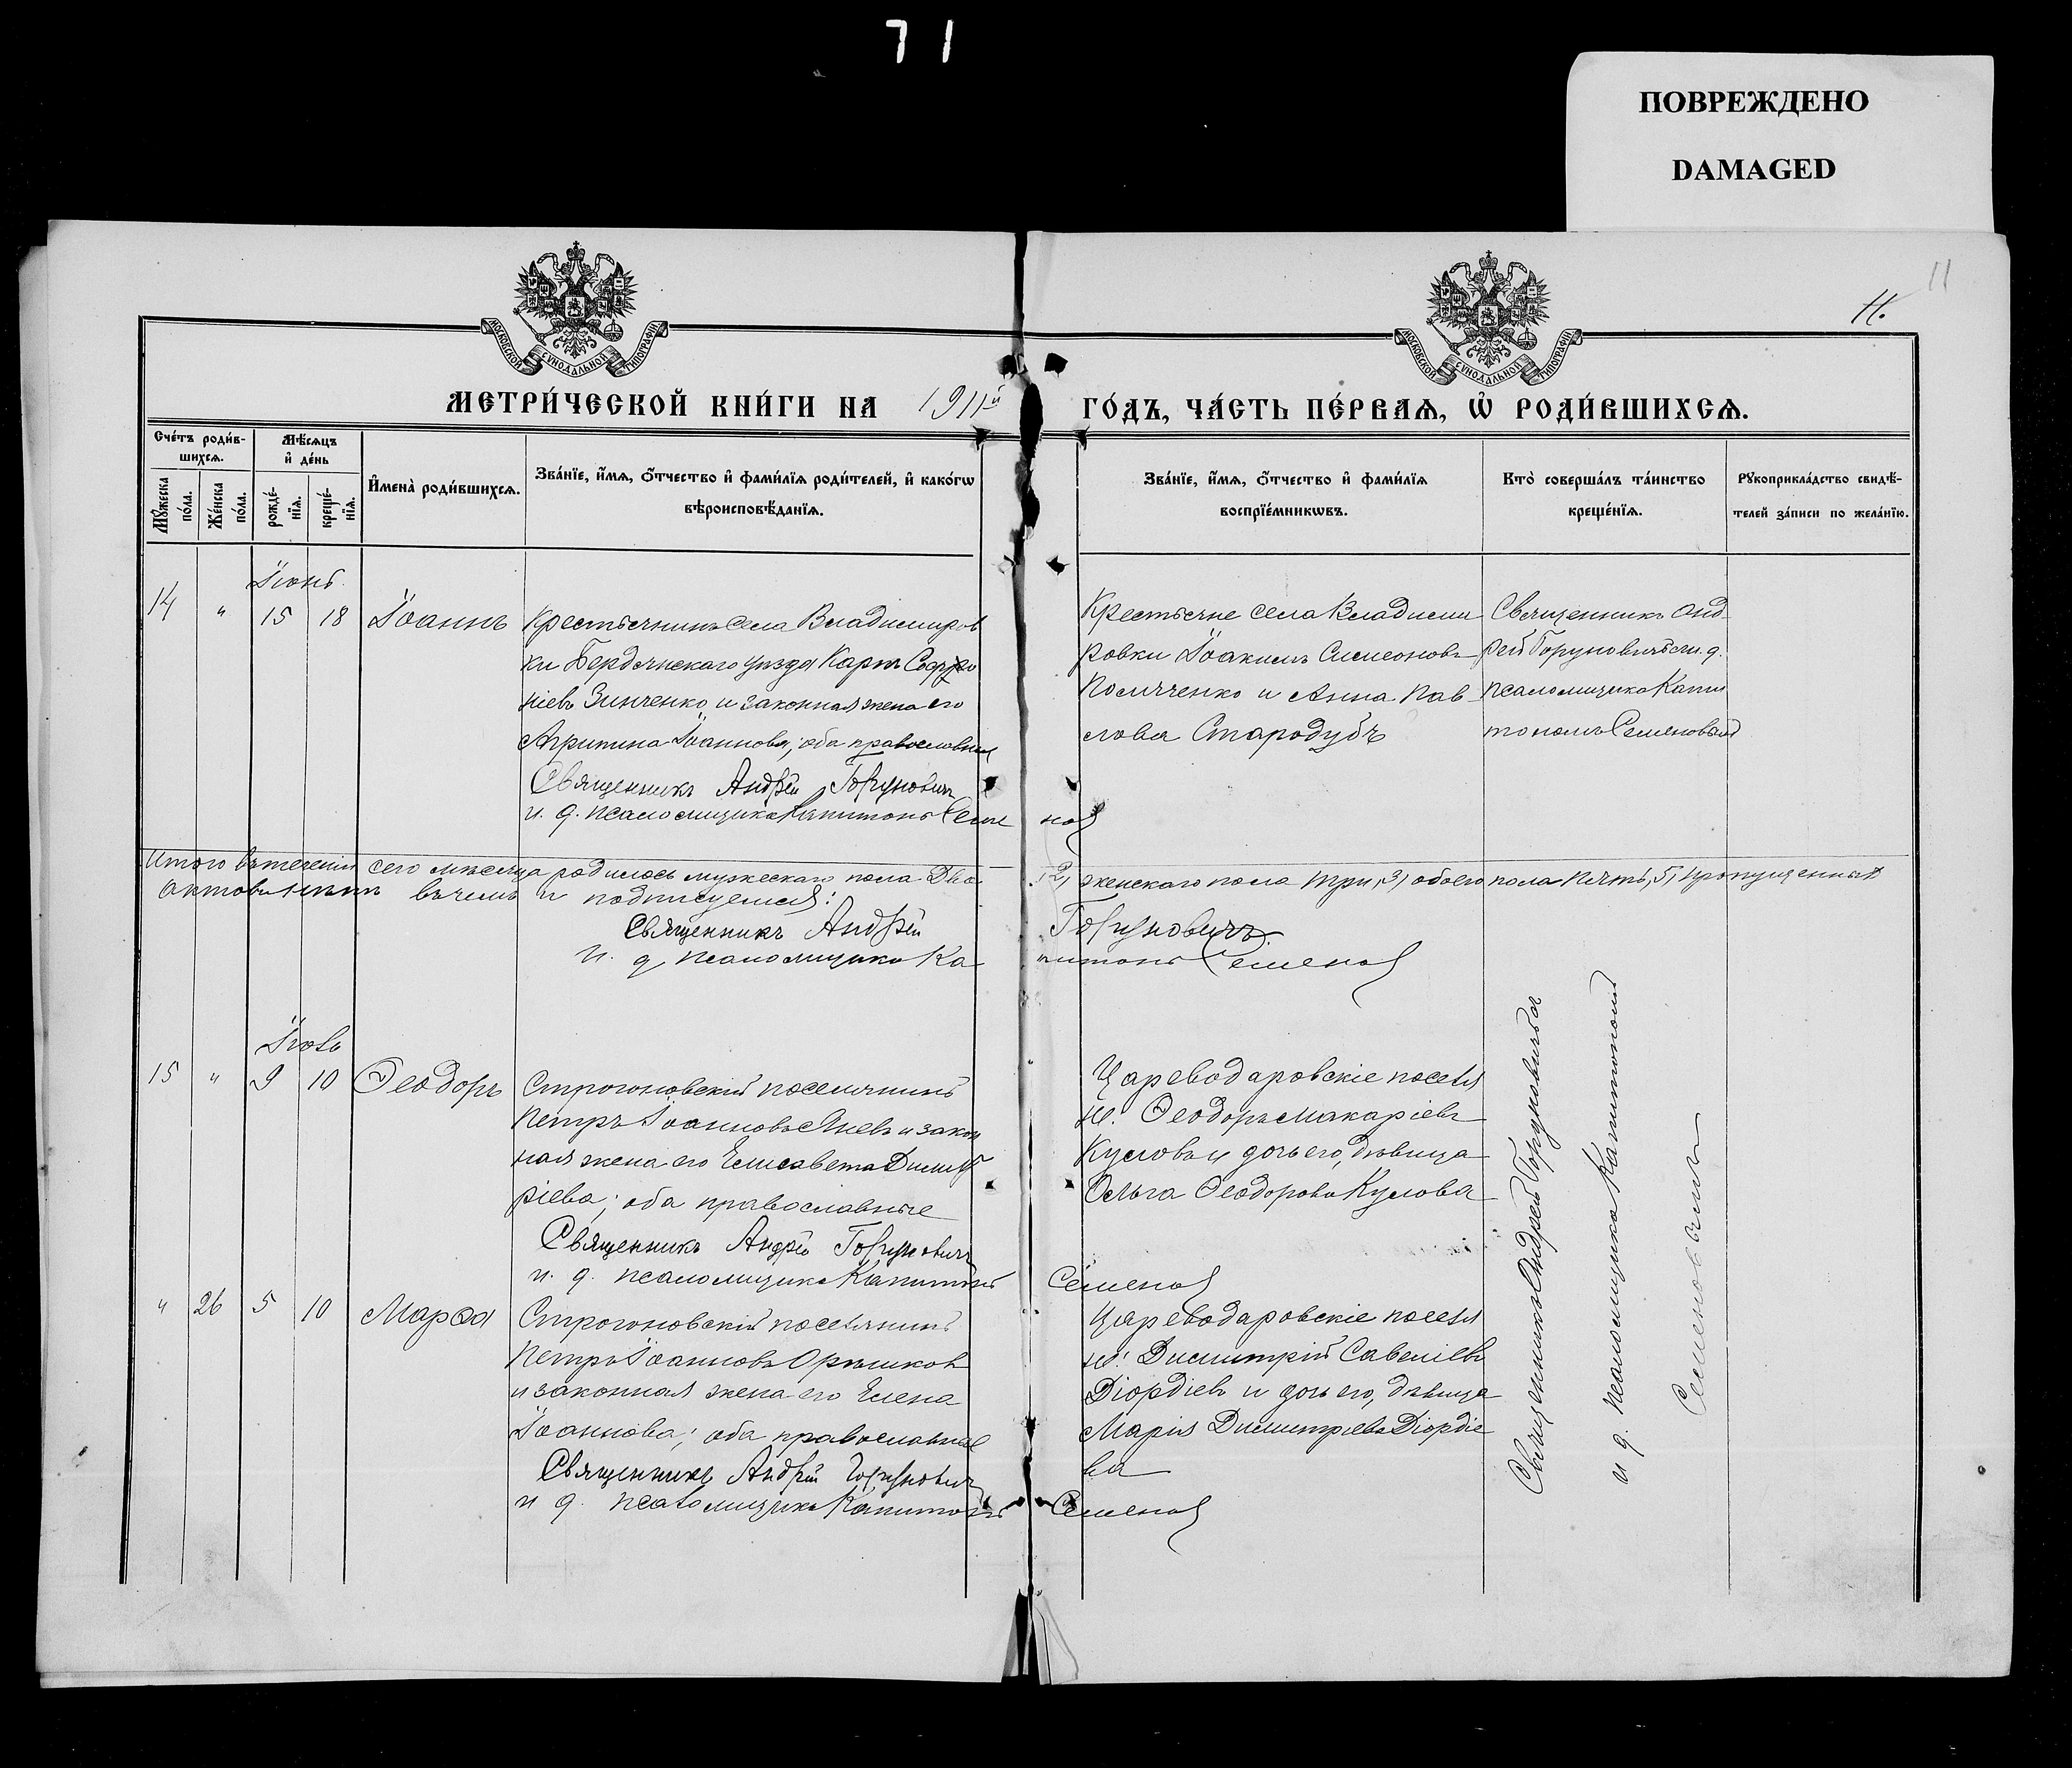 71
ПОВРЕЖДЕНО
DAMAGED
11
11.
МОСКОВСКОЙ СѴНОДАЛЬНОЙ ТИПОГРАФІИ
МОСКОВСКОЙ СѴНОДАЛЬНОЙ ТИПОГРАФІИ
МЕТРИ́ЧЕСКОЙ КНИ́ГИ НА 1911й ГО́ДЪ, ЧА́СТЬ ПЕ́РВАѦ, Ѡ҆ РОДИ́ВШИХСѦ.
Сче́тъ роди́в-
шихсѧ.
Мꙋ́жеска по́ла.
Же́нска по́ла.
Мѣ́сѧцъ
и҆ де́нь
рожде́-нїѧ.
креще́-нїѧ.
И҆мена̀ роди́вшихсѧ.
Зва́нїе, и҆́мѧ, ѻ҆́тчество и҆ фами́лїѧ роди́телей, и҆ како́гѡ
вѣроисповѣ́данїѧ.
Зва́нїе, и҆́мѧ, ѻ҆́тчество и҆ фами́лїѧ
воспрїе́мникѡвъ.
Кто̀ соверша́лъ та́инство
креще́нїѧ.
Рꙋкоприкла́дство свидѣ́-
телей за́писи по жела́нїю.
Іюнь.
14 " 15 18 Іоаннъ
Крестьянинъ села Владимиров
ки Бердянскаго уѣзда Карпъ Софро
ніевъ Зинченко и законная жена его
Агрипина Іоаннова; оба православныя
Священникъ Андрей Горуновичъ
и. д. псаломщика Капитонъ Семенов
Крестьяне села Владими
ровки Іоакимъ Симеоновъ
и Анна Пав
лова Стародубъ
Священникъ Анд
рей Горуновичъ съ и. д.
псаломщика Капи
тономъ Семеновымъ
Итого въ теченіи сего мѣсяца родилось мужескаго пола два ,2, женскаго пола три ,3, обоего пола пять ,5, пропущенныхъ
актовъ нѣтъ въ чемъ и подписуемся:
Священникъ Андрей Горуновичъ.
и. д. псаломщика Капитонъ Семенов
Іюль
15 " 9 10 Ѳеодоръ
Строгоновскій поселянинъ
Петръ Іоанновъ Яневъ и закон
ная жена его Елисавета Димит
ріева; оба православные
Священникъ Андрей Горуновичъ
и. д. псаломщика Капитонъ Семенов
Цареводаровскіе поселя
не: Ѳеодоръ Макаріевъ
Куловъ и дочь его, дѣвица
Ольга Ѳеодорова Кулова
" 26 5 10 Марѳа
Строгоновскій поселянинъ
Петръ Іоанновъ Орѣшковъ
и законная жена его Елена
Іоаннова; оба православные
Священникъ Андрей Горуновичъ
и д. псаломщика Капитонъ Семенов
Цареводаровскіе поселя
не: Димитрій Савеліевъ
Діордіевъ и дочь его, дѣвица
Марія Димитріева Діордіе
ва
Священникъ Андрей Горуновичъ съ
и д. псаломщика Капитономъ
Семеновымъ